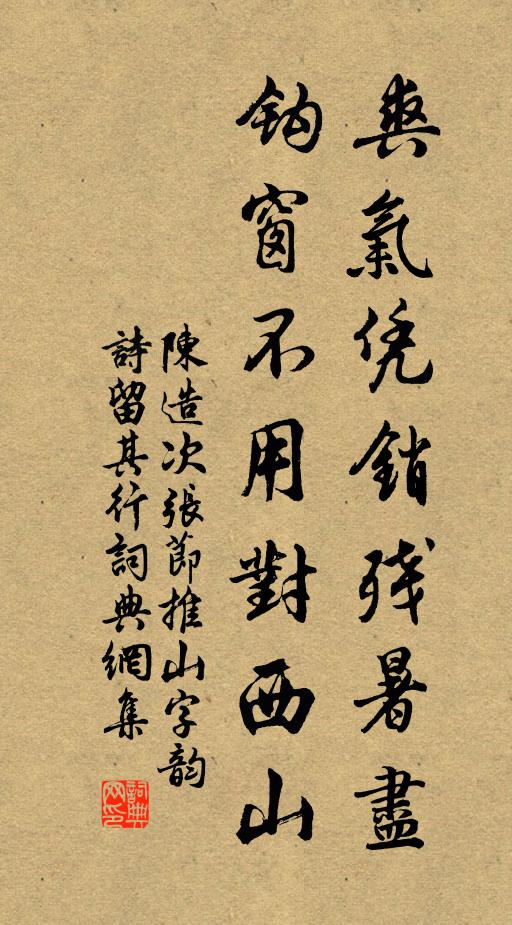 爽氣凭銷殘暑盡
鈎窗不用對西山
陳造次張節推山字韵
詩留其行詞典網集
詞典網印